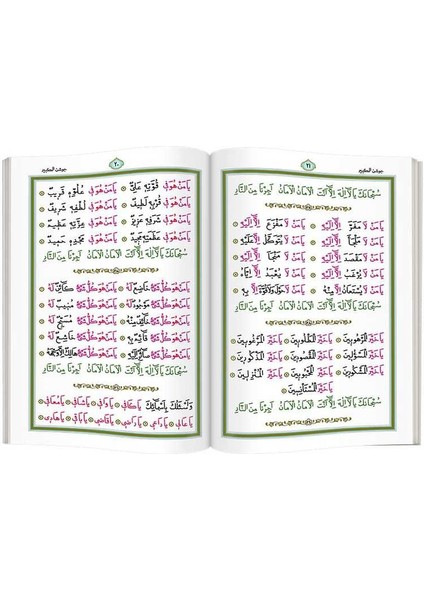 جوشن الكبير
٢٠
يَا مَنْ هُوَ فِي قُوَّتِهِ عَلِيٌّ يَا مَنْ هُوَ فِي عُلُوِّهِ قَرِيبٌ
يَا مَنْ هُوَ فِي قُرْبِهِ لَطِيفٌ يَا مَنْ هُوَ فِي لُطْفِهِ شَرِيفٌ
يَا مَنْ هُوَ فِي شَرَفِهِ عَزِيزٌ يَا مَنْ هُوَ فِي عِزِّهِ عَظِيمٌ
يَا مَنْ هُوَ فِي عَظَمَتِهِ مَجِيدٌ يَا مَنْ هُوَ فِي مَجْدِهِ حَمِيدٌ
سُبْحَانَكَ يَا لَا اِلٰهَ اِلَّا اَنْتَ الْاَمَانُ الْاَمَانُ اَجِرْنَا مِنَ النَّارِ
يَا مَنْ هُوَ كُلُّ شَيْءٍ خَاضِعٌ لَهُ يَا مَنْ هُوَ كُلُّ شَيْءٍ كَائِنٌ لَهُ
يَا مَنْ هُوَ كُلُّ شَيْءٍ مَوْجُودٌ لَهُ يَا مَنْ هُوَ كُلُّ شَيْءٍ مُنِيبٌ لَهُ
يَا مَنْ هُوَ كُلُّ شَيْءٍ خَائِفٌ مِنْهُ يَا مَنْ هُوَ كُلُّ شَيْءٍ مُسَبِّحٌ لَهُ
يَا مَنْ هُوَ كُلُّ شَيْءٍ قَائِمٌ بِهِ يَا مَنْ هُوَ كُلُّ شَيْءٍ خَاشِعٌ لَهُ
يَا مَنْ هُوَ كُلُّ شَيْءٍ اِلَيْهِ يَا مَنْ هُوَ كُلُّ شَيْءٍ هَالِكٌ اِلَّا وَجْهَهُ
وَاَسْئَلُكَ بِاَسْمَائِكَ يَا كَافِي يَا وَافِي يَا شَافِي يَا مُعَافِي
يَا عَالِي يَا رَاضِي يَا قَاضِي يَا بَاقِي يَا هَادِي
جوشن الكبير
٢١
سُبْحَانَكَ يَا لَا اِلٰهَ اِلَّا اَنْتَ الْاَمَانُ الْاَمَانُ اَجِرْنَا مِنَ النَّارِ
يَا مَنْ لَا مَفَرَّ اِلَّا اِلَيْهِ يَا مَنْ لَا مَفْزَعَ اِلَّا اِلَيْهِ
يَا مَنْ لَا مَلْجَأَ اِلَّا اِلَيْهِ يَا مَنْ لَا يُتَوَكَّلُ اِلَّا عَلَيْهِ
يَا مَنْ لَا مَقْصَدَ اِلَّا اِلَيْهِ يَا مَنْ لَا مَنْجَا اِلَّا اِلَيْهِ
يَا مَنْ لَا يُرْغَبُ اِلَّا اِلَيْهِ يَا مَنْ لَا يُعْبَدُ اِلَّا اِيَّاهُ
يَا مَنْ لَا يُسْتَعَانُ اِلَّا مِنْهُ يَا مَنْ لَا حَوْلَ وَلَا قُوَّةَ اِلَّا بِهِ
سُبْحَانَكَ يَا لَا اِلٰهَ اِلَّا اَنْتَ الْاَمَانُ الْاَمَانُ اَجِرْنَا مِنَ النَّارِ
يَا خَيْرَ الْمَرْهُوبِينَ يَا خَيْرَ الْمَطْلُوبِينَ يَا خَيْرَ الْمَرْغُوبِينَ
يَا خَيْرَ الْمَسْؤُلِينَ يَا خَيْرَ الْمَقْصُودِينَ يَا خَيْرَ الْمَذْكُورِينَ
يَا خَيْرَ الْمَشْكُورِينَ يَا خَيْرَ الْمَحْبُوبِينَ يَا خَيْرَ الْمُنْزِلِينَ
يَا خَيْرَ الْمُسْتَأْنِسِينَ
سُبْحَانَكَ يَا لَا اِلٰهَ اِلَّا اَنْتَ الْاَمَانُ الْاَمَانُ اَجِرْنَا مِنَ النَّارِ